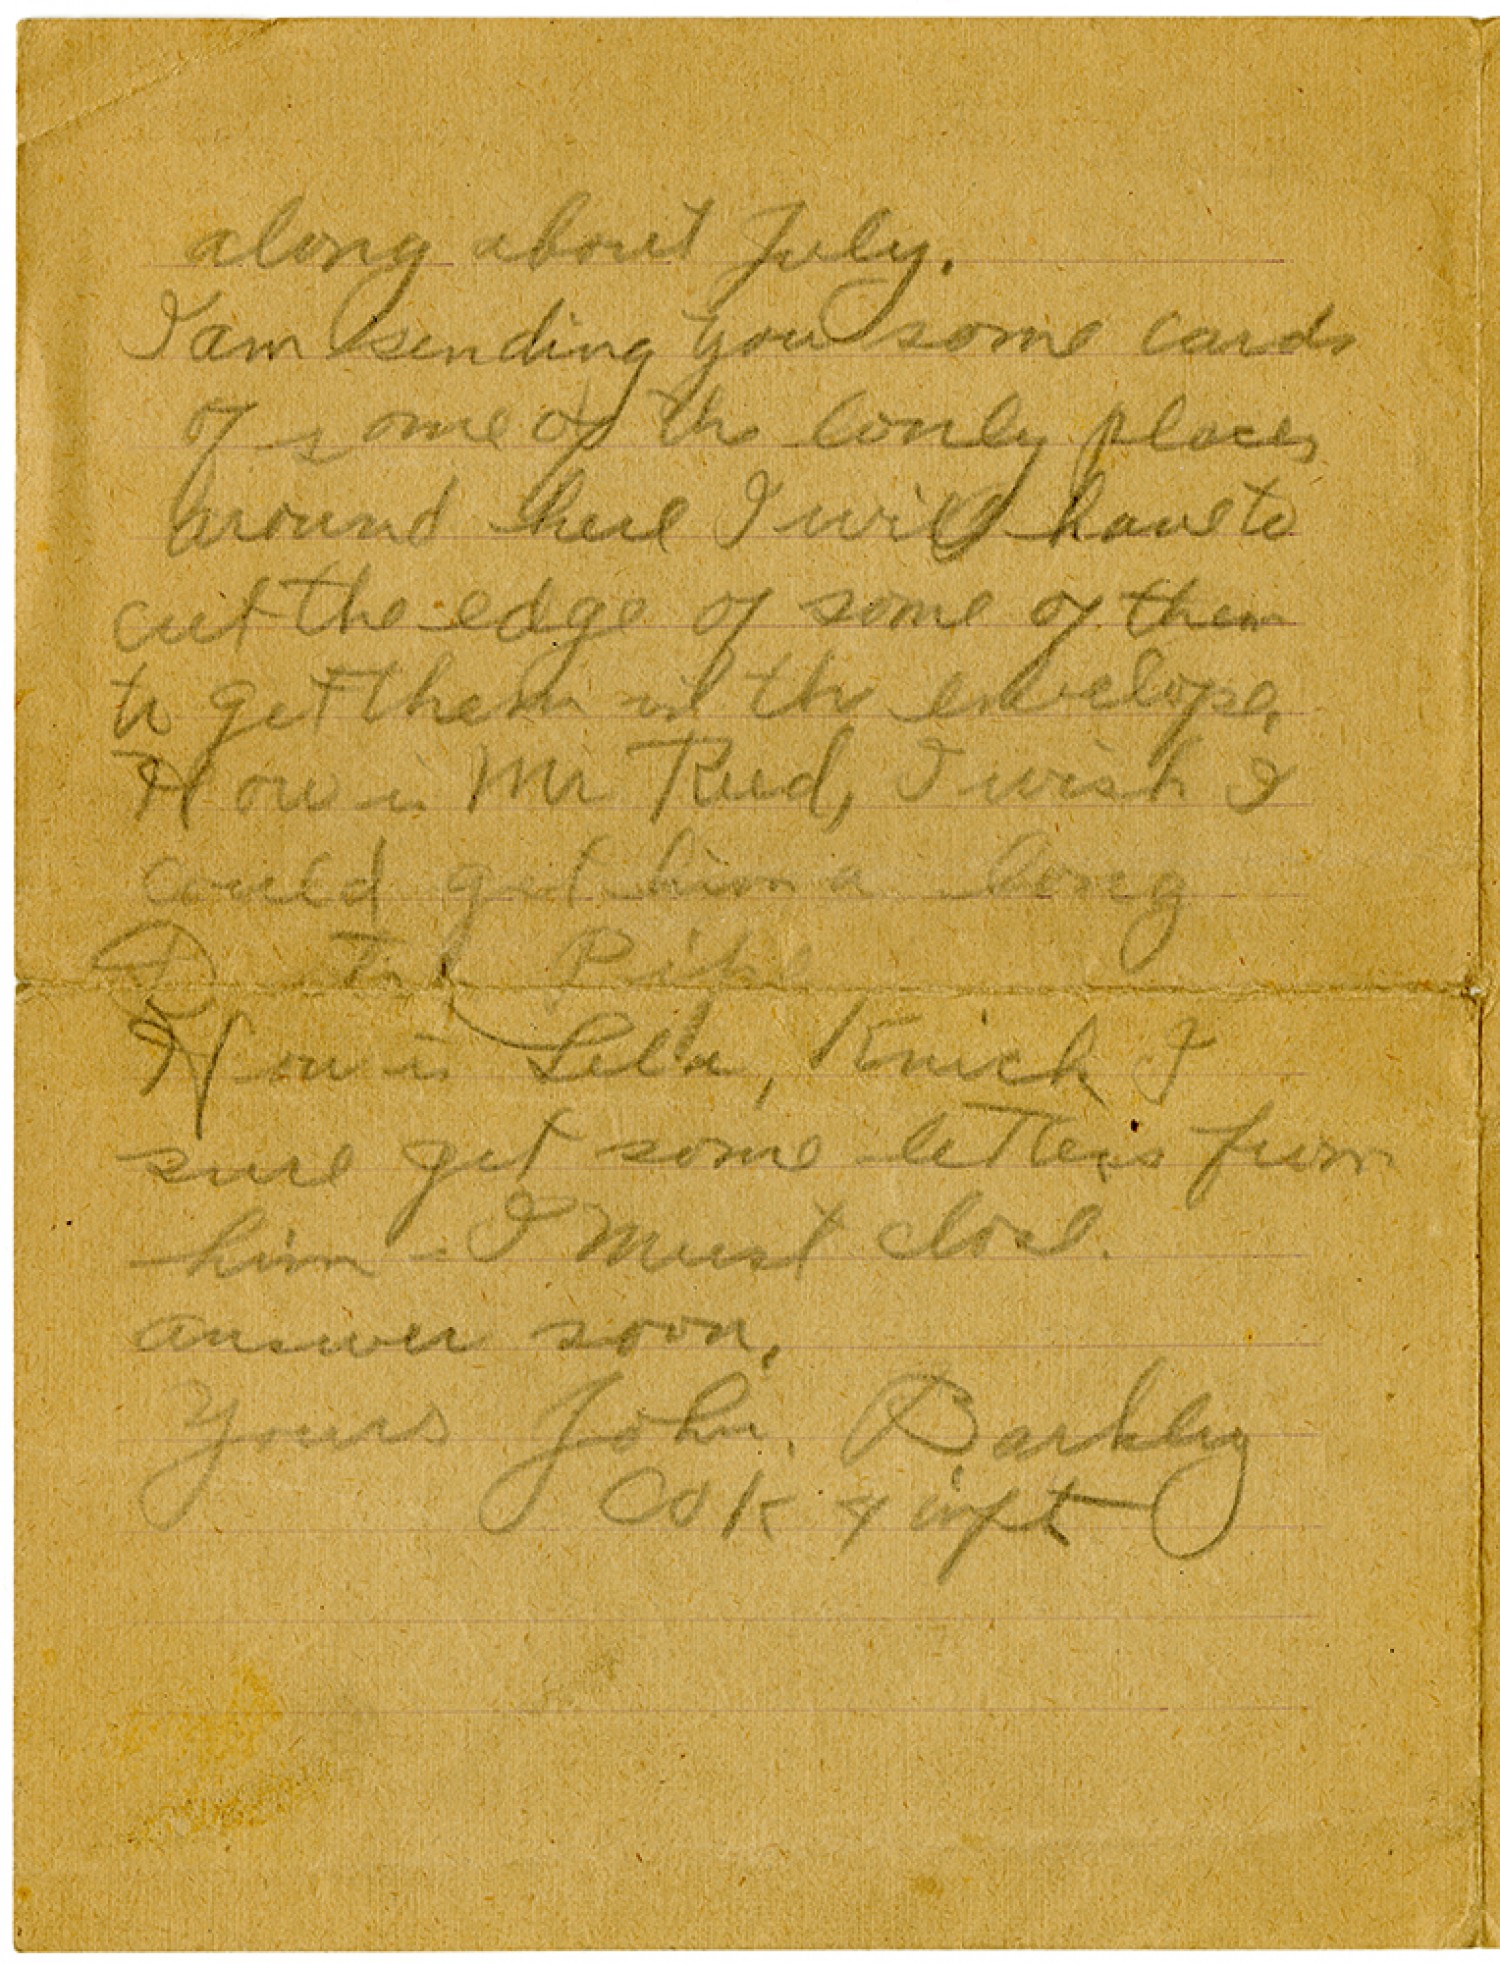 along about July.
I am sending you some cards
of some of the lonly places
around here I will have to
cut the edge of some of them
to get them in the envelope.
How is Mr Reed, I wish I
could get him a long
Pipe
How is Lela, Knick I
sure get some letters from
him - I must close.
answer soon.
Yours John. Barkley
CoK 4 inft